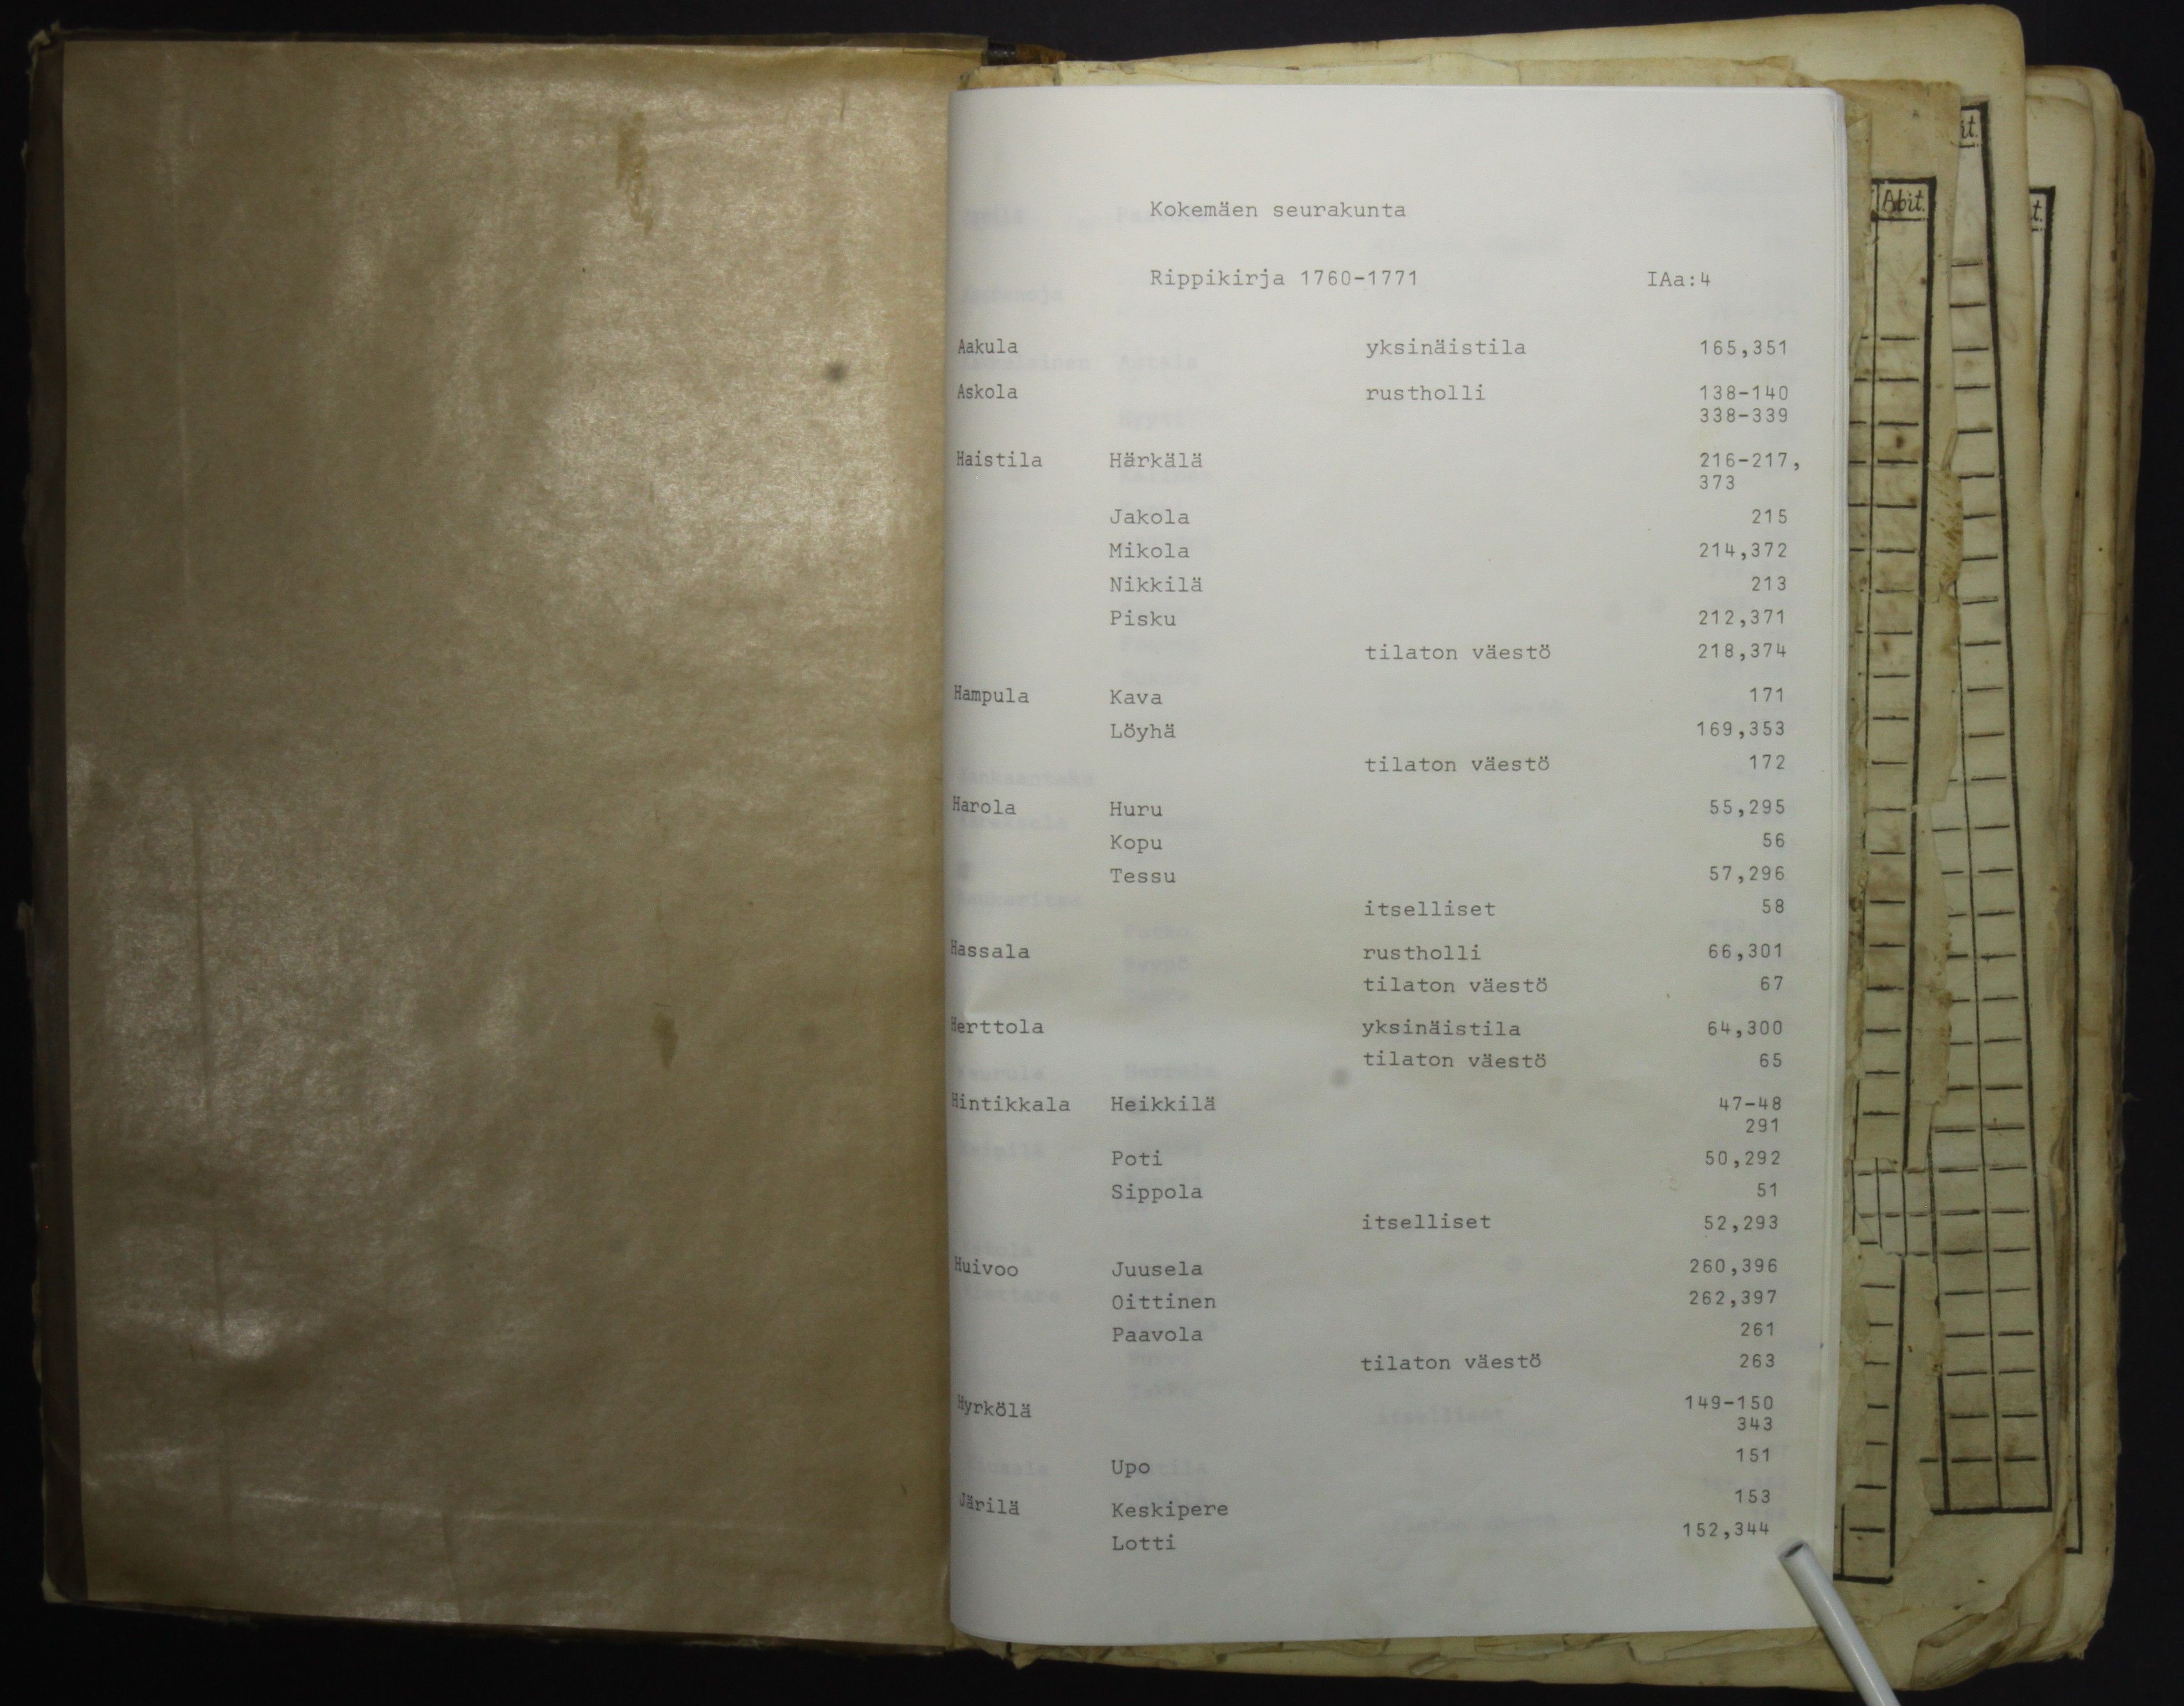 Kokemäen seurakunta
Rippikirja 1760-1771 IAa:4
Aakula yksinäistila 165,351
Askola rustholli 138-140
338-339
Haistila Härkälä 216-217,
373
Jakola 215
Mikola 214,372
Nikkilä 213
Pisku 212,371
tilaton väestö 218,374
Hampula Kava 171
Löyhä 169,353
tilaton väestö 172
Harola Huru 55,295
Kopu 56
Tessu 57,296
itselliset 58
Hassala rustholli 66,301
tilaton väestö 67
Herttola yksinäistila 64,300
tilaton väestö 65
Hintikkala Heikkilä 47-48
291
Poti 50,292
Sippola 51
itselliset 52,293
Huivoo Juusela 260,396
Oittinen 262,397
Paavola 261
tilaton väestö 263
Hyrkölä 149-150
343
Upo 151
Järilä Keskipere 153
Lotti 152,344
Abit.